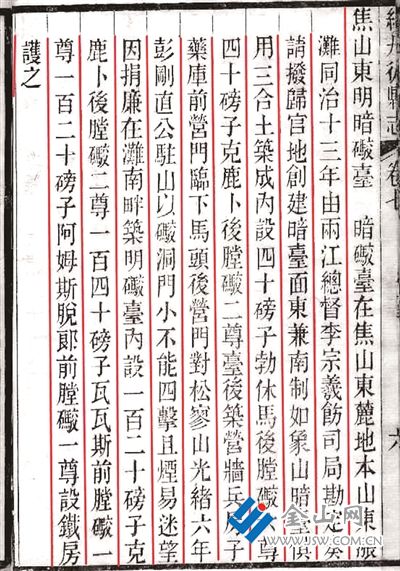 續丹徒縣志 卷七
六
焦山東明暗礮臺 暗礮臺在焦山東麓地本山東漲
灘同治十三年由兩江總督李宗羲飭司局勘定奏
請撥歸官地創建暗臺面東兼南制如象山暗臺慎
用三合土築成內設四十磅子勃休馬後膛礮尊
四十磅子克鹿卜後膛礮二尊臺後築營牆兵房子
藥庫前營門臨下馬頭後營門對松寥山光緒六年
彭剛直公駐山以礮洞門小不能四擊且煙易迷望
因捐廉在灘南畔築明礮臺內設一百二十磅子克
鹿卜後膛礮二尊一百四十磅子瓦瓦斯前膛礮一
尊一百二十磅子阿姆斯脫郎前膛礮一尊設鐵房
護之
金山网
www.jsw.com.cn